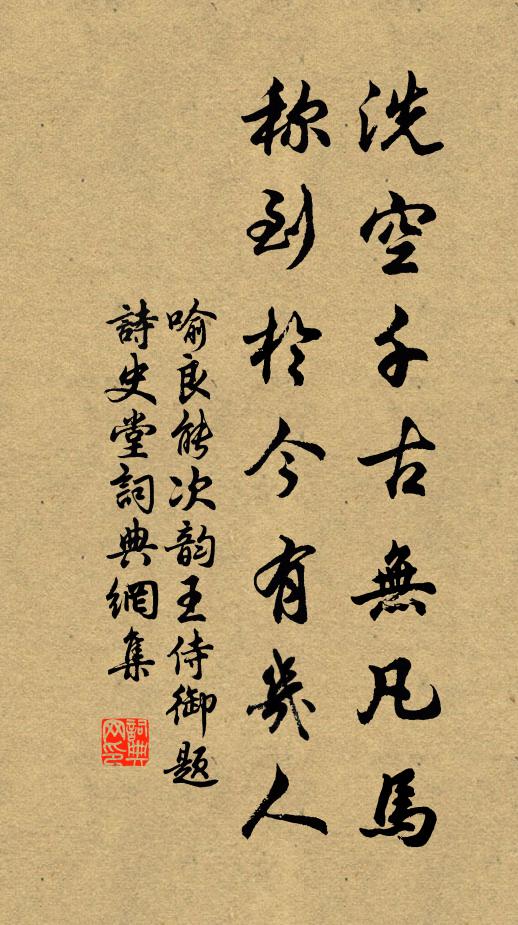 洗空千古無凡馬
称到於今有幾人
喻良能次韵王侍御题
詩史堂詞典網集
詞典网印